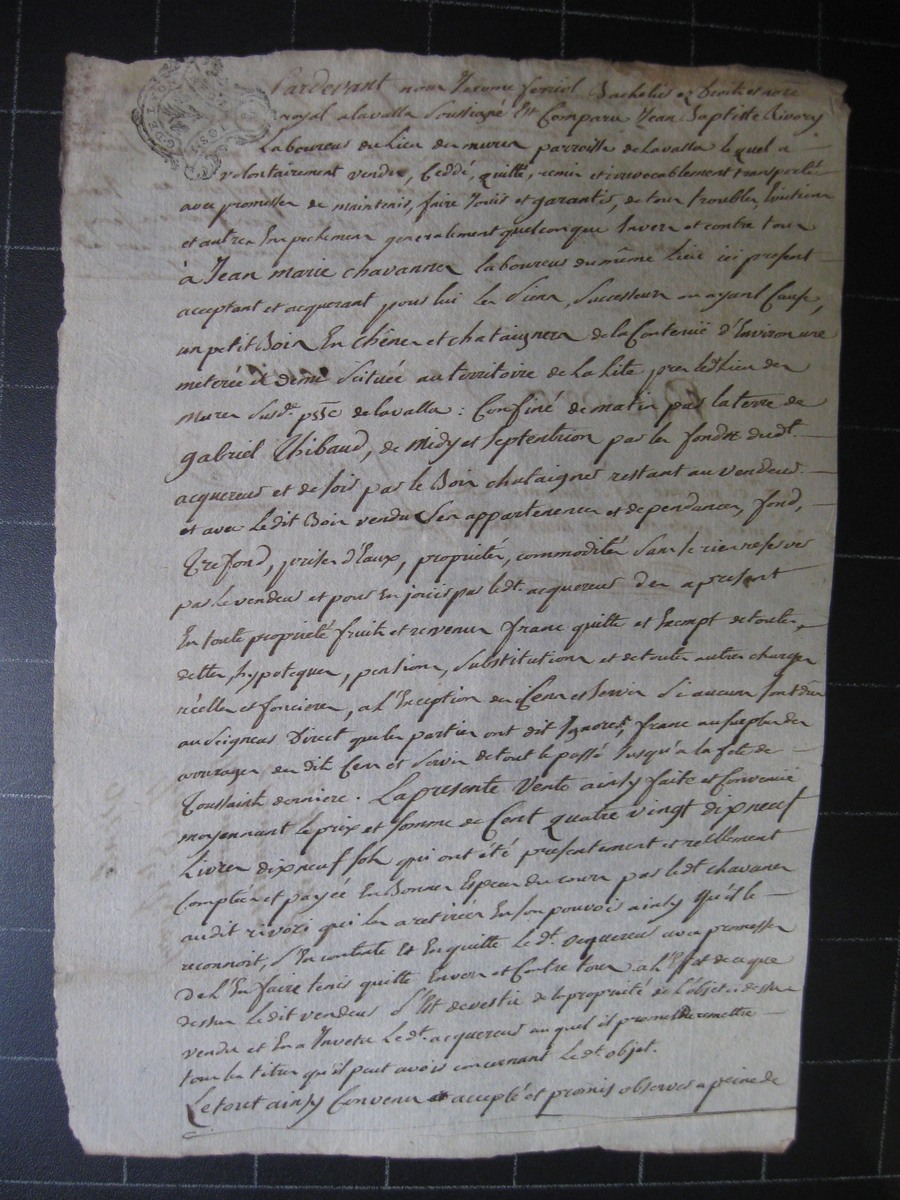 Pardevant nous Jerome feriol Bachelier ez Droits et nore
royal a lavalla Soussigné Est Comparu Jean Baptiste Rivory
Laboureur du Lieu du murer parroisse de lavalla lequel a
volontairement vendu, Ceddé, quitté, remis et irrevocablement transporté
avec promesser de maintenir, faire Jouir et garantir, de tour troubler Evictionr
et autrer Empechemenr generalement quelconquer Enverr et contre tour
à Jean marie chavanner laboureur du même Lieu ici present
acceptant et acquerant pour lui Ler Sienr, Successeurr ou ayant Cause,
un petit Boir En chêner et chataigner de la Contenüe d'Environ une
meterée et demi Scituée au territoire de La Lite prer ledt Lieu der
murer Susdt. psse de lavalla : Confiné de matin par la terre de
gabriel Thibaud, de Midy et Septentrion par ler fondr dudt.
acquereur et de soir par le Boir chataigner restant au vendeur
et avec Ledit Boir vendu Ser appartenencer et dependancer, fond,
Trefond, priser d'Eaux, proprietér, commoditér Sanr Se rien reserver
par le vendeur et pour En jouir par ledt. acquereur der a present
En toute proprieté fruitr et revenur franc quitte et Exempt de toute
detter, hypotequer, pensionr, Substitutionr et de touter autrer charger
réeller et foncierer, a l'Exception du Cenr et Servir Si aucunr Sont dûr
au Seigneur Direct que ler partier ont dit Ignorer, franc au surplur der
arreragser du dit Cenr et Servir de tout le passé Jusqu'a la fete de
Toussaint derniere. La presente Vente ainsy faite et Convenüe
moyennant le prix et Somme de Cent quatre vingt dix neuf
Livrer dix neuf solr qui ont été presentement et réellement
Comptéer et payéer En Bonner Especer du courr par ledt chavaner
audit rivori qui ler a retiréer En son pouvoir ainsy qu'il le
reconnoit, S'En contente Et En quitte Le dt. acquereur avec promesser
de L'En faire tenir quitte Enverr et Contre tour a l'Effet de ce que
dessur Ledit vendeur S'Est devestir de la proprieté de l'objet ci dessur
vendu et En a Investi Le dt. acquereur au quel il promet remettre
tour ler titrer qu'il peut avoir concernant Le dt. objet.
Le tout ainsy Convenu et accepté et promis observer a peine de